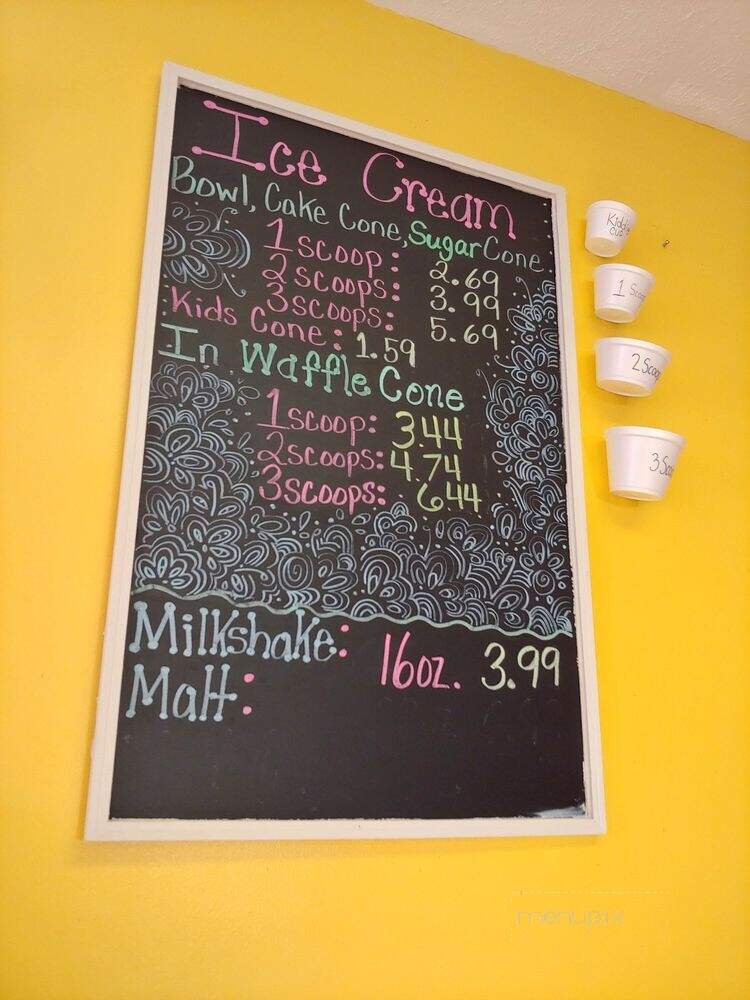 Ice Cream
Bowl, Cake Cone, Sugar Cone
1 scoop: 2.69
2 scoops: 3.99
3 scoops: 5.69
Kids Cone: 1.59
In Waffle Cone
1 scoop: 3.44
2 scoops: 4.74
3 scoops: 6.44
Milkshake: 16oz. 3.99
Malt:
CUP
1
2
3
menupix